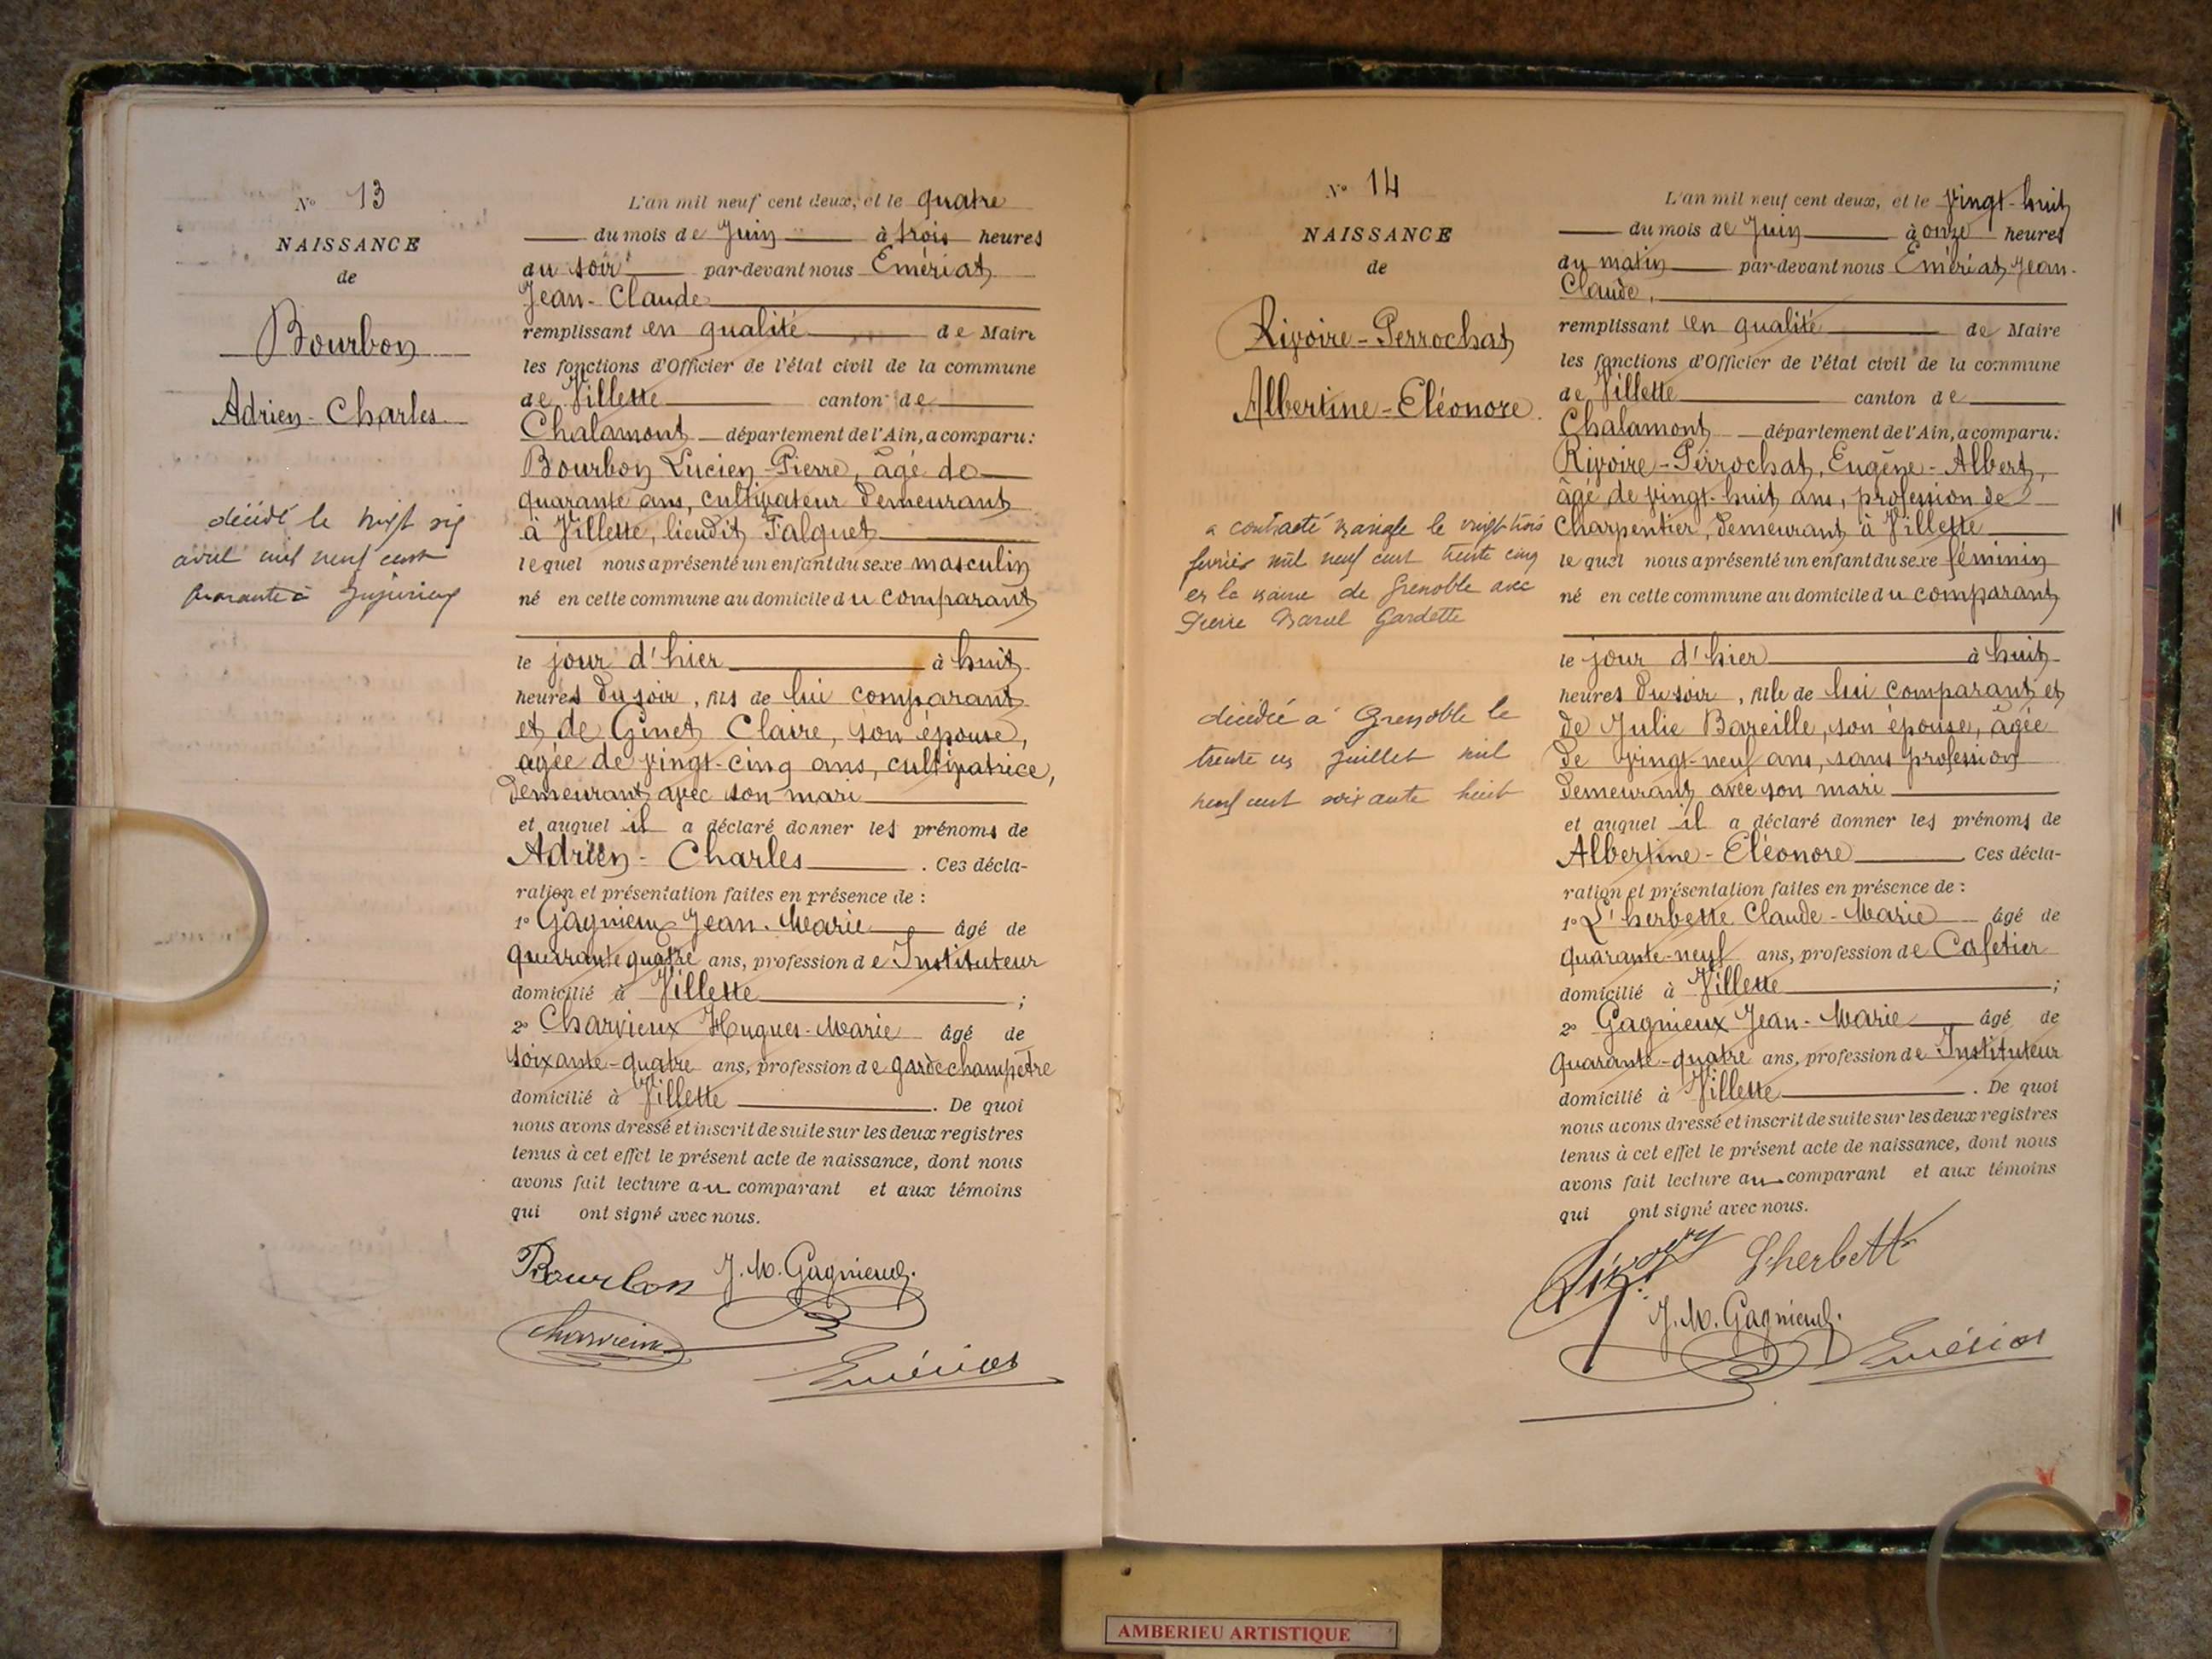 N° 13
NAISSANCE
de
Bourbon
Adrien-Charles
décédé le vingt six
avril mil neuf cent
quarante à Jujurieux
L'an mil neuf cent deux, et le quatre
du mois de Juin à trois heures
du soir par-devant nous Emériat
Jean-Claude
remplissant en qualité de Maire
les fonctions d'Officier de l'état civil de la commune
de Villette canton de
Chalamont département de l'Ain, a comparu:
Bourbon Lucien-Pierre, âgé de
quarante ans, cultivateur demeurant
à Villette, lieudit Falquet
lequel nous a présenté un enfant du sexe masculin
né en cette commune au domicile du comparant
le jour d'hier à huit
heures du soir, fils de lui comparant
et de Ginet Claire, son épouse,
agée de vingt-cinq ans, cultivatrice,
demeurant avec son mari
et auquel il a déclaré donner les prénoms de
Adrien-Charles. Ces décla-
ration et présentation faites en présence de :
1° Gagnieux Jean-Marie âgé de
quarante quatre ans, profession de Instituteur
domicilié à Villette ;
2° Charvieux Hugues-Marie âgé de
soixante-quatre ans, profession de garde champêtre
domicilié à Villette. De quoi
nous avons dressé et inscrit de suite sur les deux registres
tenus à cet effet le présent acte de naissance, dont nous
avons fait lecture au comparant et aux témoins
qui ont signé avec nous.
Bourbon J. M. Gagnieux.
Charvieux
Emériat
N° 14
NAISSANCE
de
Rivoire-Perrochat
Albertine-Eléonore.
a contracté mariage le vingt trois
février mil neuf cent trente cinq
en la mairie de Grenoble avec
Pierre Marcel Gardette
décédée à Grenoble le
trente un juillet mil
neuf cent soixante huit
L'an mil neuf cent deux, et le vingt-huit
du mois de Juin à onze heures
du matin par-devant nous Emériat Jean-
Claude,
remplissant en qualité de Maire
les fonctions d'Officier de l'état civil de la commune
de Villette canton de
Chalamont département de l'Ain, a comparu:
Rivoire-Perrochat, Eugène-Albert,
âgé de vingt-huit ans, profession de
Charpentier, demeurant à Villette
lequel nous a présenté un enfant du sexe féminin
né en cette commune au domicile du comparant
le jour d'hier à huit
heures du soir, fille de lui comparant et
de Julie Bareille, son épouse, âgée
de vingt-neuf ans, sans profession
demeurant avec son mari
et auquel il a déclaré donner les prénoms de
Albertine-Eléonore Ces décla-
ration et présentation faites en présence de :
1° L'herbette Claude-Marie âgé de
quarante-neuf ans, profession de Cafetier
domicilié à Villette ;
2° Gagnieux Jean-Marie âgé de
quarante-quatre ans, profession de Instituteur
domicilié à Villette. De quoi
nous avons dressé et inscrit de suite sur les deux registres
tenus à cet effet le présent acte de naissance, dont nous
avons fait lecture au comparant et aux témoins
qui ont signé avec nous.
Lherbette
J. M. Gagnieux.
Emériat
AMBERIEU ARTISTIQUE